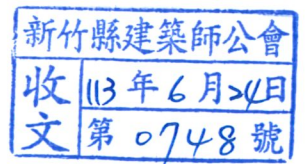 新竹縣建築師公會
收文
113年6月24日
第0748號